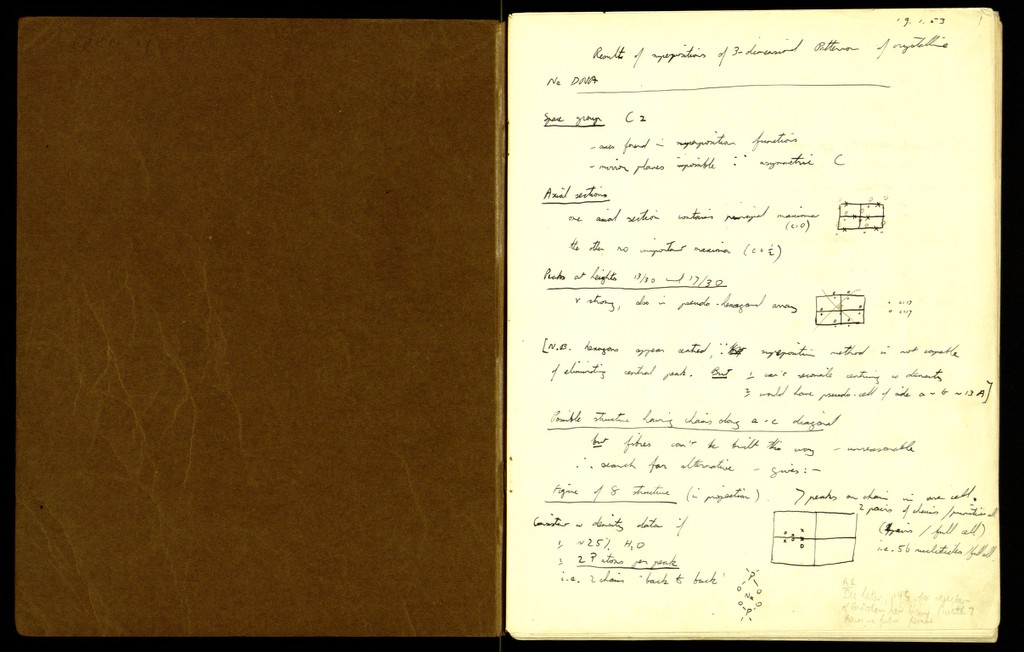 19.1.53
Results of superpositions of 3-dimensional Patterson of crystalline
Na DNA
Space group C2
- axes found in superposition functions
- mirror planes impossible ∵ asymmetric C
Axial sections
one axial section contains principal maxima
(c=0)
the other no important maxima (c=½)
Peaks at heights 13/30 and 17/30
v strong, also in pseudo-hexagonal array
[N.B. hexagons appear centred, ∵ superposition method is not capable
of eliminating central peak. But 1, can't reconcile centring w density
2, would have pseudo-cell of side a ~ b ~ 13 A]
Possible structure having chains along a-c diagonal
but fibres can't be built this way - unreasonable
∴ search for alternative - gives:-
Figure of 8 structure (in projection). 7 peaks on chain in one cell.
2 pairs of chains / primitive cell
(pairs / full cell)
i.e. 56 nucleotides / full cell
Consistent w density data if
1, ~25% H2O
2, 2 P atoms per peak
i.e. 2 chains 'back to back'
P
O O
Na
O O
P